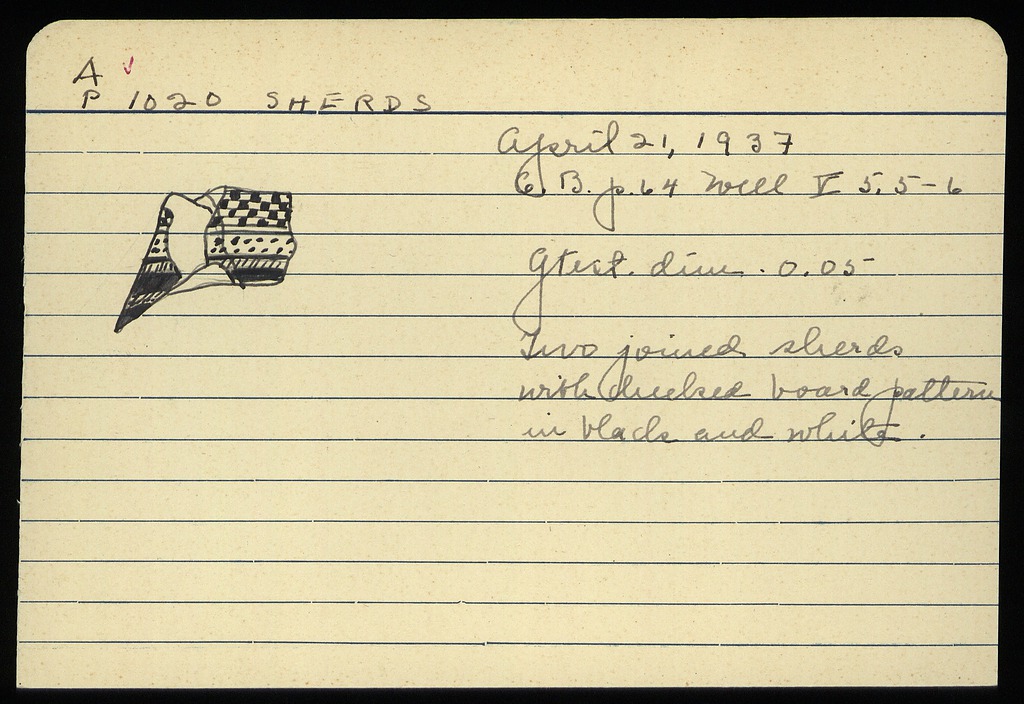 A
P 1020 SHERDS
April 21, 1937
C. B. p. 64 Well V 5.5-6
Gtest. dim. 0.05
Two joined sherds
with checked board pattern
in black and white.